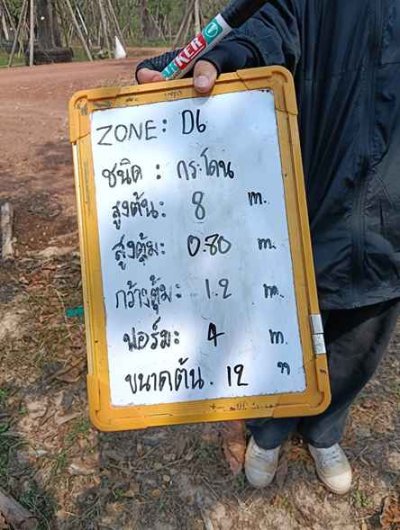 MARKER
ZONE: D6
ชนิด: กระโดน
สูงต้น: 8 m.
สูงตุ้ม: 0.80 m.
กว้างตุ้ม: 1.2 m.
ฟอร์ม: 4 m.
ขนาดต้น. 12 "